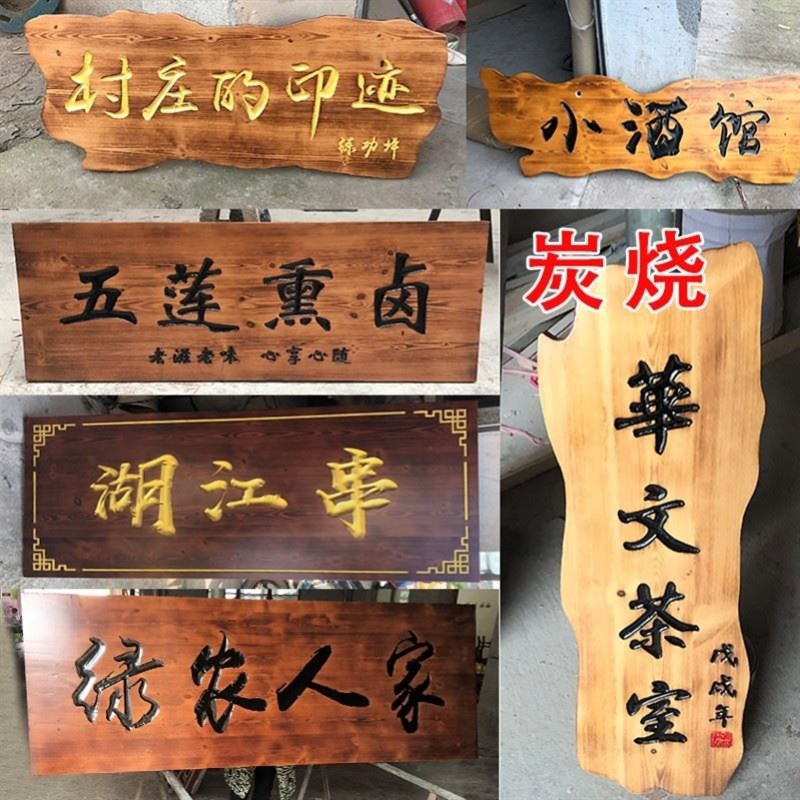 村庄的印迹
练功坪
小酒馆
五莲熏卤
老滋老味 心享心随
炭烧
湖江串
绿农人家
華文茶室
戊戌年